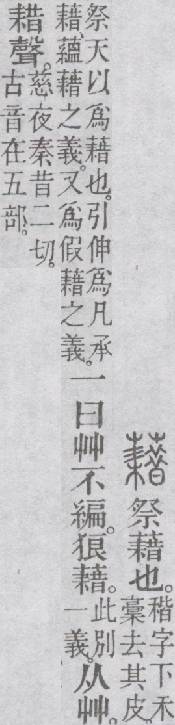 藉 祭藉也。稭字下禾稾去其皮。
祭天以爲藉也。引伸爲凡承藉、蘊藉之義。又爲假藉之義。一曰艸不編。狼藉。此別一義。从艸。
耤聲。慈夜秦昔二切。古音在五部。